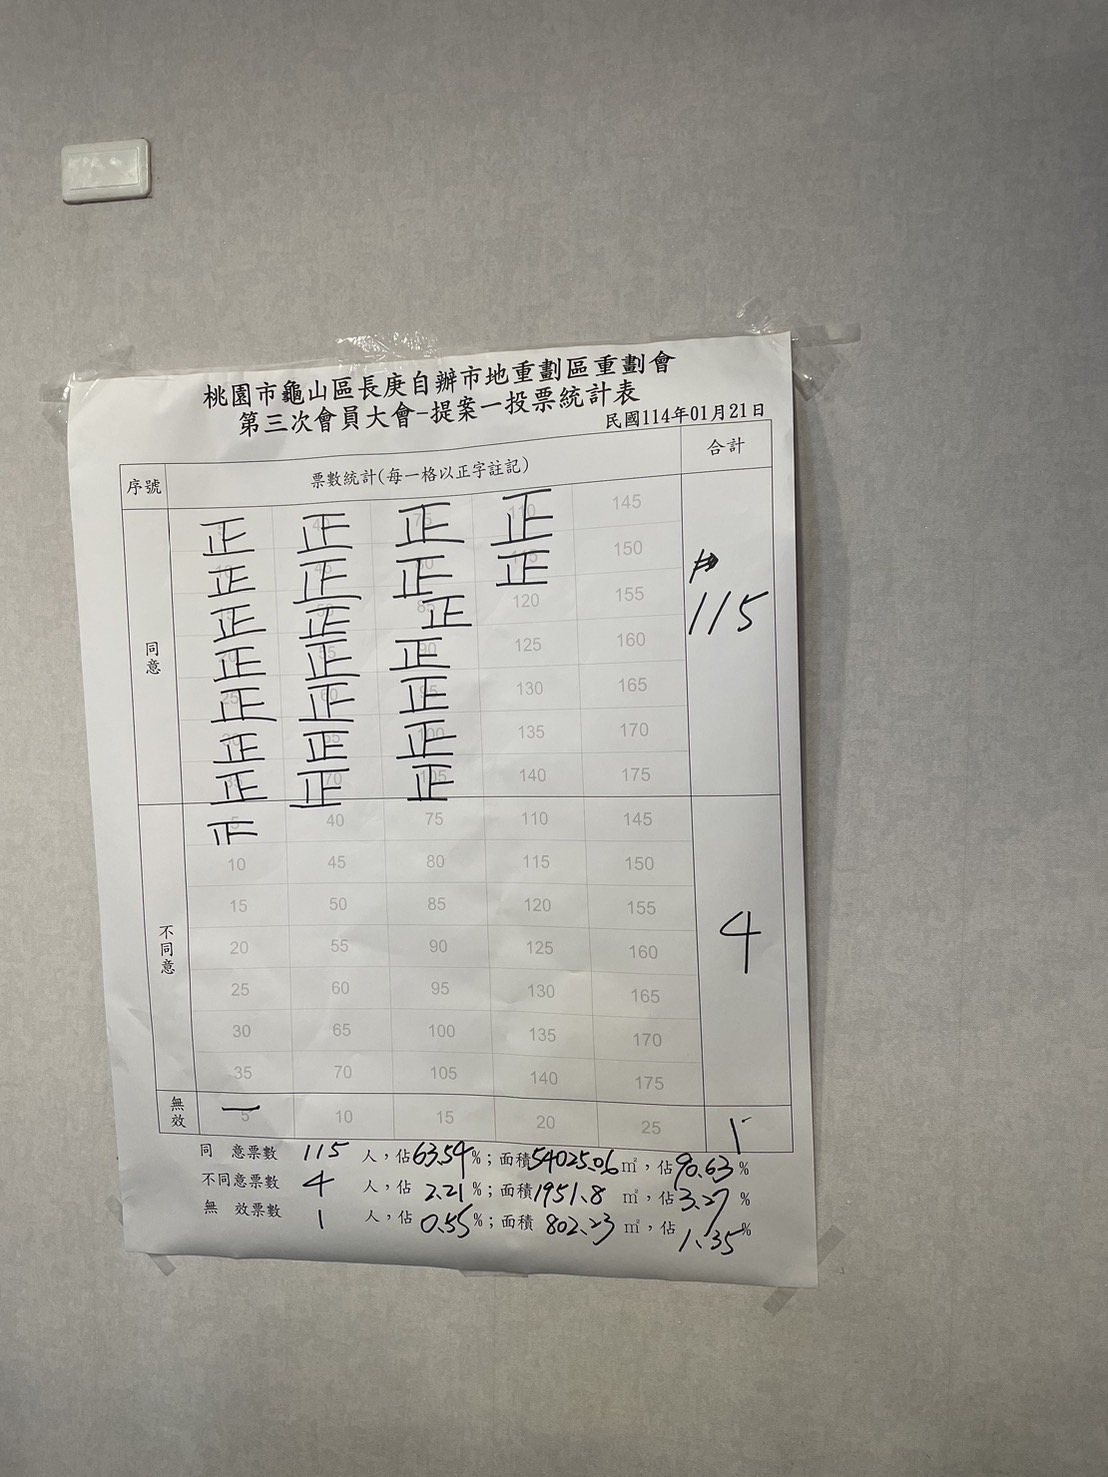 桃園市龜山區長庚自辦市地重劃區重劃會
第三次會員大會-提案一投票統計表
民國114年01月21日
序號 票數統計(每一格以正字註記) 合計
同意
正 正 正 正 145
正 正 正 正 150
正 正 正 120 155
正 正 正 125 160
正 正 正 130 165
正 正 正 135 170
正 正 正 140 175
115
不同意
5 40 75 110 145
10 45 80 115 150
15 50 85 120 155
20 55 90 125 160
25 60 95 130 165
30 65 100 135 170
35 70 105 140 175
4
無效 一 5 10 15 20 25 1
同 意票數 115 人,佔63.54%;面積54025.06㎡,佔90.63%
不同意票數 4 人,佔 2.21%;面積1951.8 ㎡,佔3.27%
無 效票數 1 人,佔 0.55%;面積 802.23 ㎡,佔1.35%